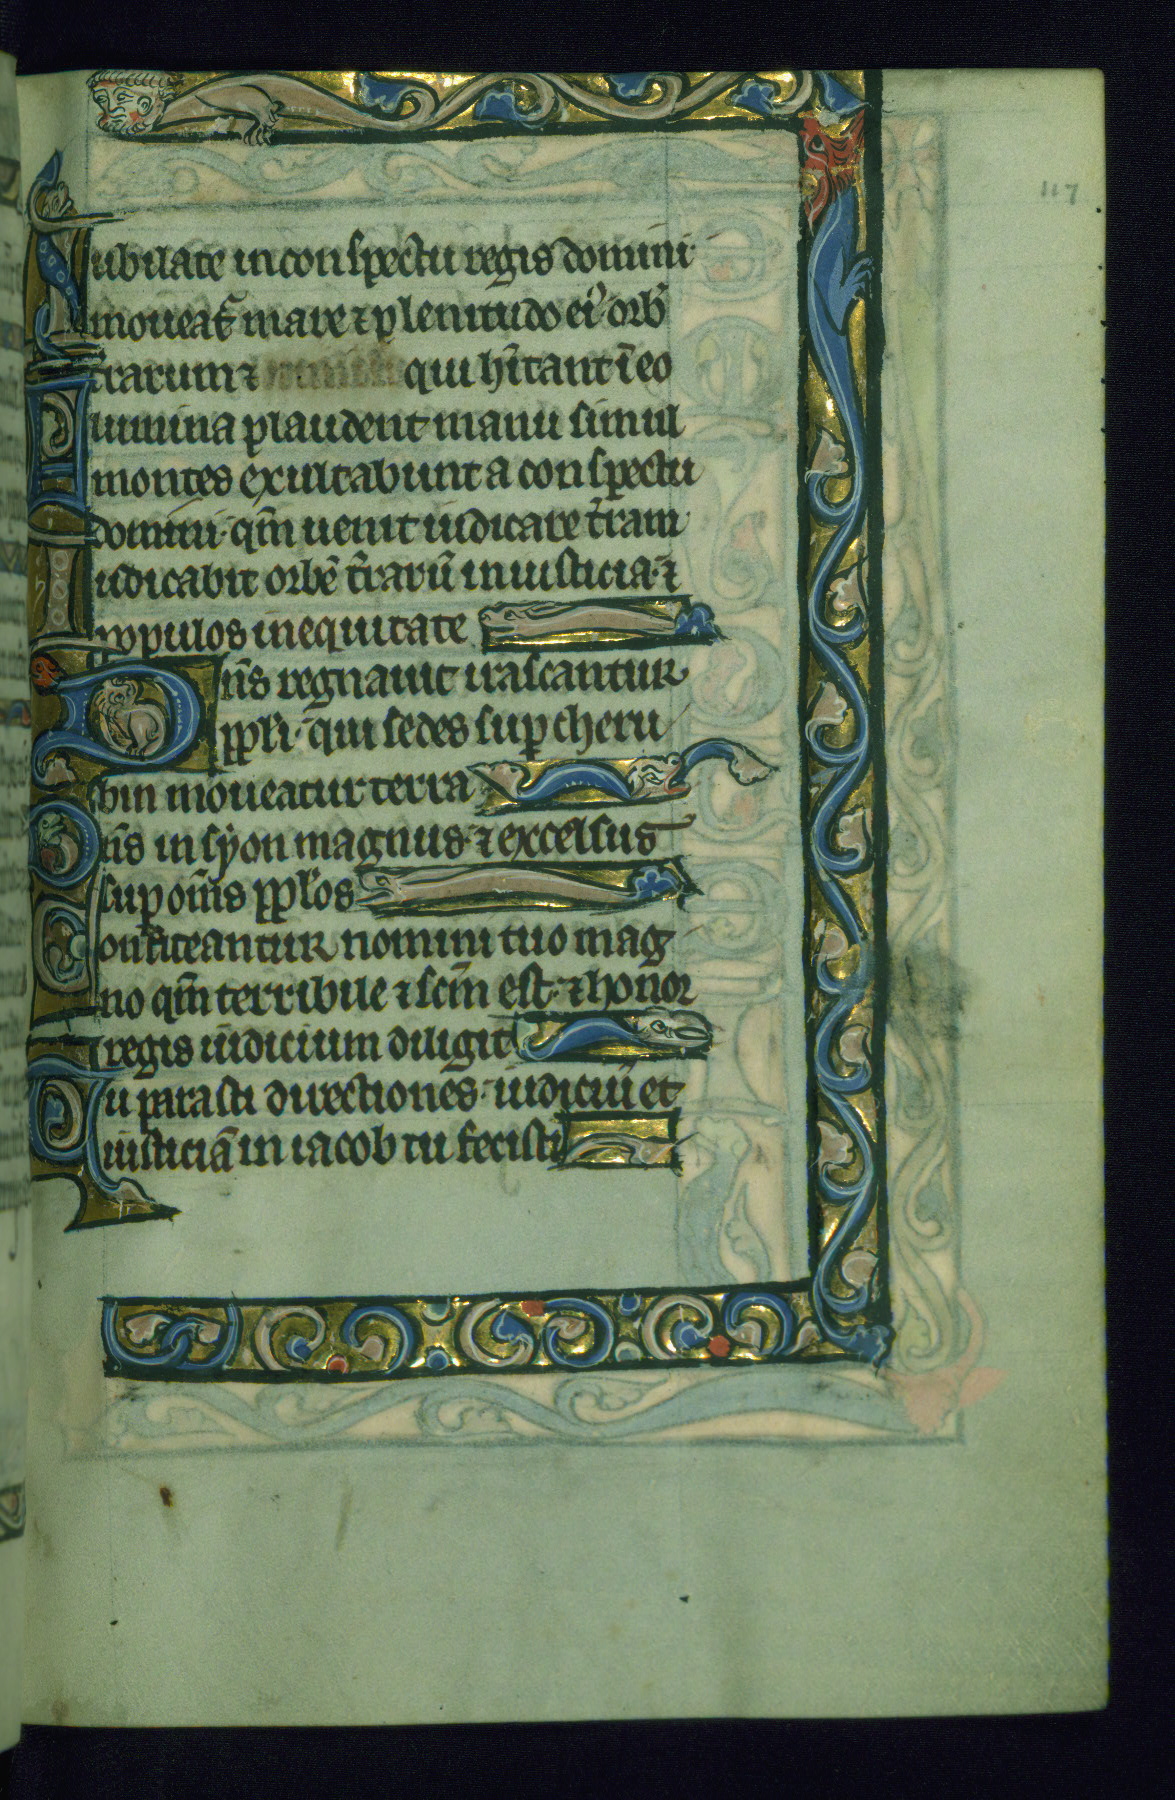 117
Iubilate in conspectu regis domini·
moueat̃ mare ⁊ plenitudo ei᾽ orb᾽
t̃rarum ⁊ qui hĩtant ĩ eo
Flumina plaudent manu simul
montes exultabunt a conspectu
domini· qm̃ uenit iudicare t̃ram
Iudicabit orbẽ t̃rarũ in iusticia· ⁊
populos in equitate
Dñs regnauit irascantur
ppl̃i· qui sedes suꝑ cheru
bin moueatur terra
Dñs in syon magnus· ⁊ excelsus
suꝑ om̃s ppl̃os
Confiteantur nomini tuo mag
no qm̃ terribile ⁊ scm̃ est· ⁊ honor
regis iudicium diligit
Tu parasti directiones· iudiciũ et
iusticiã in iacob tu fecisti